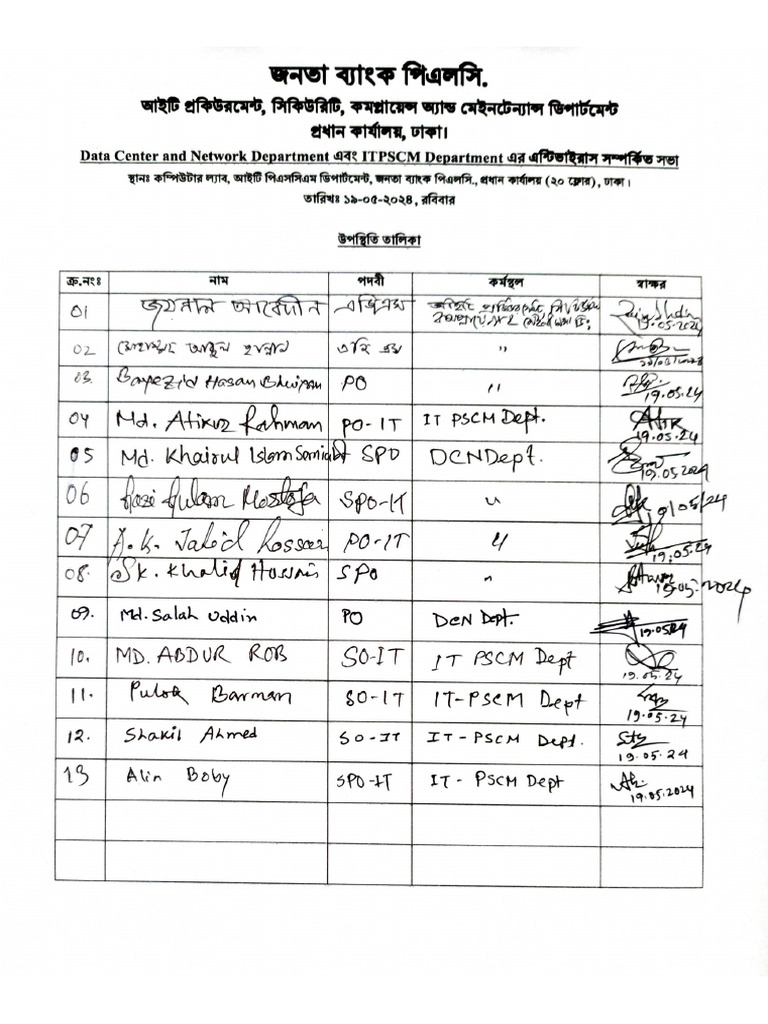 জনতা ব্যাংক পিএলসি.
আইটি প্রকিউরমেন্ট, সিকিউরিটি, কমপ্লায়েন্স অ্যান্ড মেইনটেন্যান্স ডিপার্টমেন্ট
প্রধান কার্যালয়, ঢাকা।
Data Center and Network Department এবং ITPSCM Department এর এন্টিভাইরাস সম্পর্কিত সভা
স্থানঃ কম্পিউটার ল্যাব, আইটি পিএসসিএম ডিপার্টমেন্ট, জনতা ব্যাংক পিএলসি., প্রধান কার্যালয় (২০ ফ্লোর), ঢাকা।
তারিখঃ ১৯-০৫-২০২৪, রবিবার
উপস্থিতি তালিকা
ক্র.নংঃ নাম পদবী কর্মস্থল স্বাক্ষর
01 জয়নাল আবেদীন এজিএম 19.05.2024
02 মোহাম্মদ আবুল হাসান "
03. Bayezid Hasan Bhuiyan PO " 19.05.24
04 Md. Atikur Rahman PO-IT IT PSCM Dept. Atik 19.05.24
05 Md. Khairul Islam SPO DCN Dept. 19.05.2024
06 Mostofa SPO-IT " 19/05/24
07 A.K. Jahid Hossain PO-IT " 19.05.24
08. Sk. Khalid Hossain SPO " 19.05.2024
09. Md. Salah Uddin PO DCN Dept. 19.05.24
10. MD. ABDUR ROB SO-IT IT PSCM Dept 19.05.24
11. Pulok Barman SO-IT IT-PSCM Dept 19.05.24
12. Shakil Ahmed SO-IT IT-PSCM Dept. 19.05.24
13 Alin Boby SPO-IT IT-PSCM Dept 19.05.2024